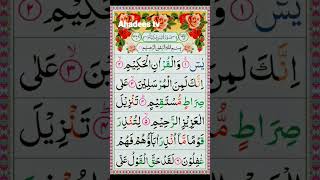 Ahadees tv
بِسْمِ اللهِ الرَّحْمٰنِ الرَّحِيْمِ
يٰسٓ ۚ﴿۱﴾ وَالْقُرْاٰنِ الْحَكِيْمِ ۙ﴿۲﴾
اِنَّكَ لَمِنَ الْمُرْسَلِيْنَ ۙ﴿۳﴾ عَلٰى
صِرَاطٍ مُّسْتَقِيْمٍ ؕ﴿۴﴾ تَنْزِيْلَ
الْعَزِيْزِ الرَّحِيْمِ ۙ﴿۵﴾ لِتُنْذِرَ
قَوْمًا مَّاۤ اُنْذِرَ اٰبَآؤُهُمْ فَهُمْ
غٰفِلُوْنَ ﴿۶﴾ لَقَدْ حَقَّ الْقَوْلُ عَلٰٓى